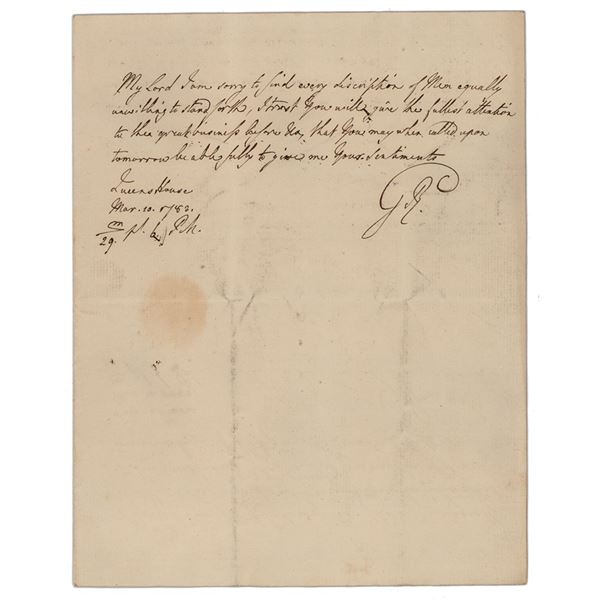 My Lord I am sorry to find every discription of Men equally
unwilling to stand forth, I trust You will give the fullest attention
to the great business before You, that You may when called upon
tomorrow be able fully to give me Your Sentiments
Queens House
Mar. 10. 1783.
m
29. pt. 6 P.M.
GR.